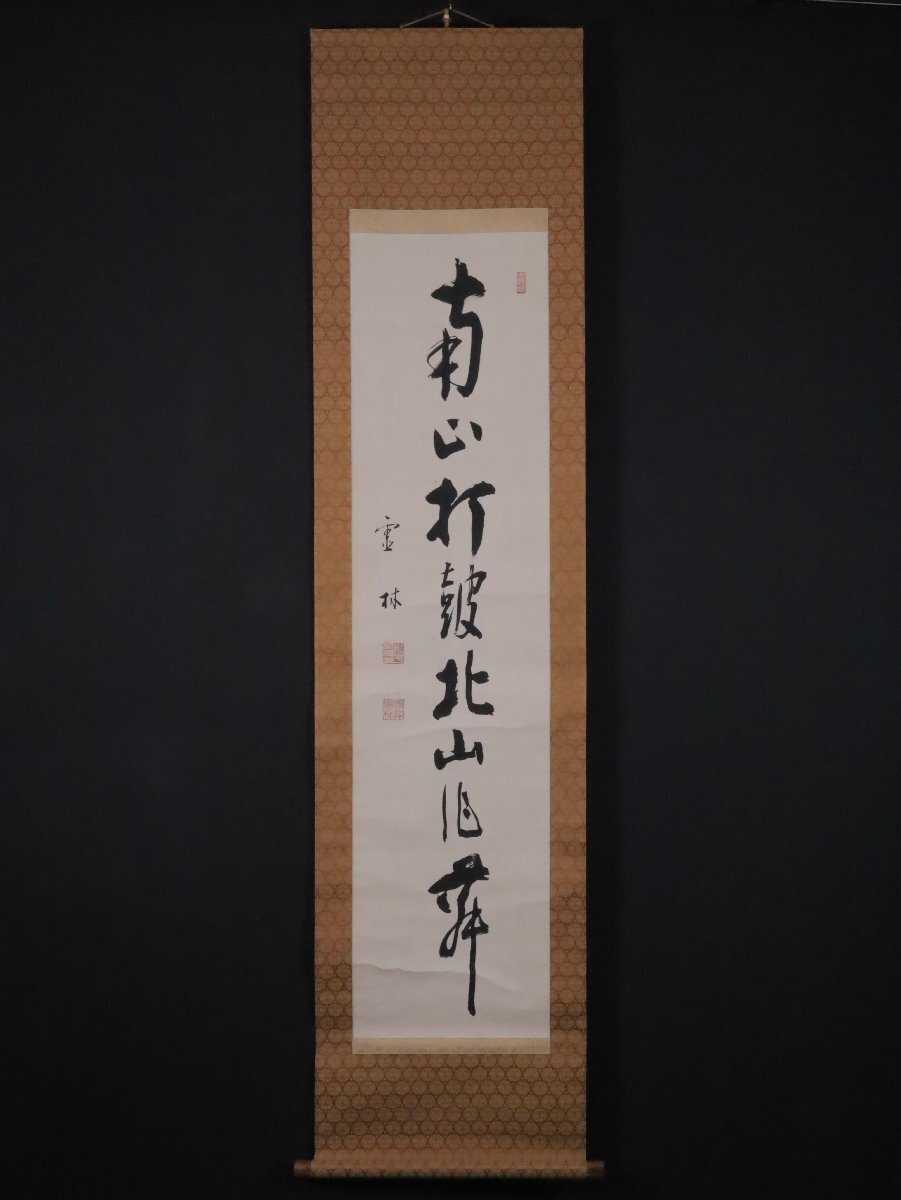 南山打皷北山作舞
霊林